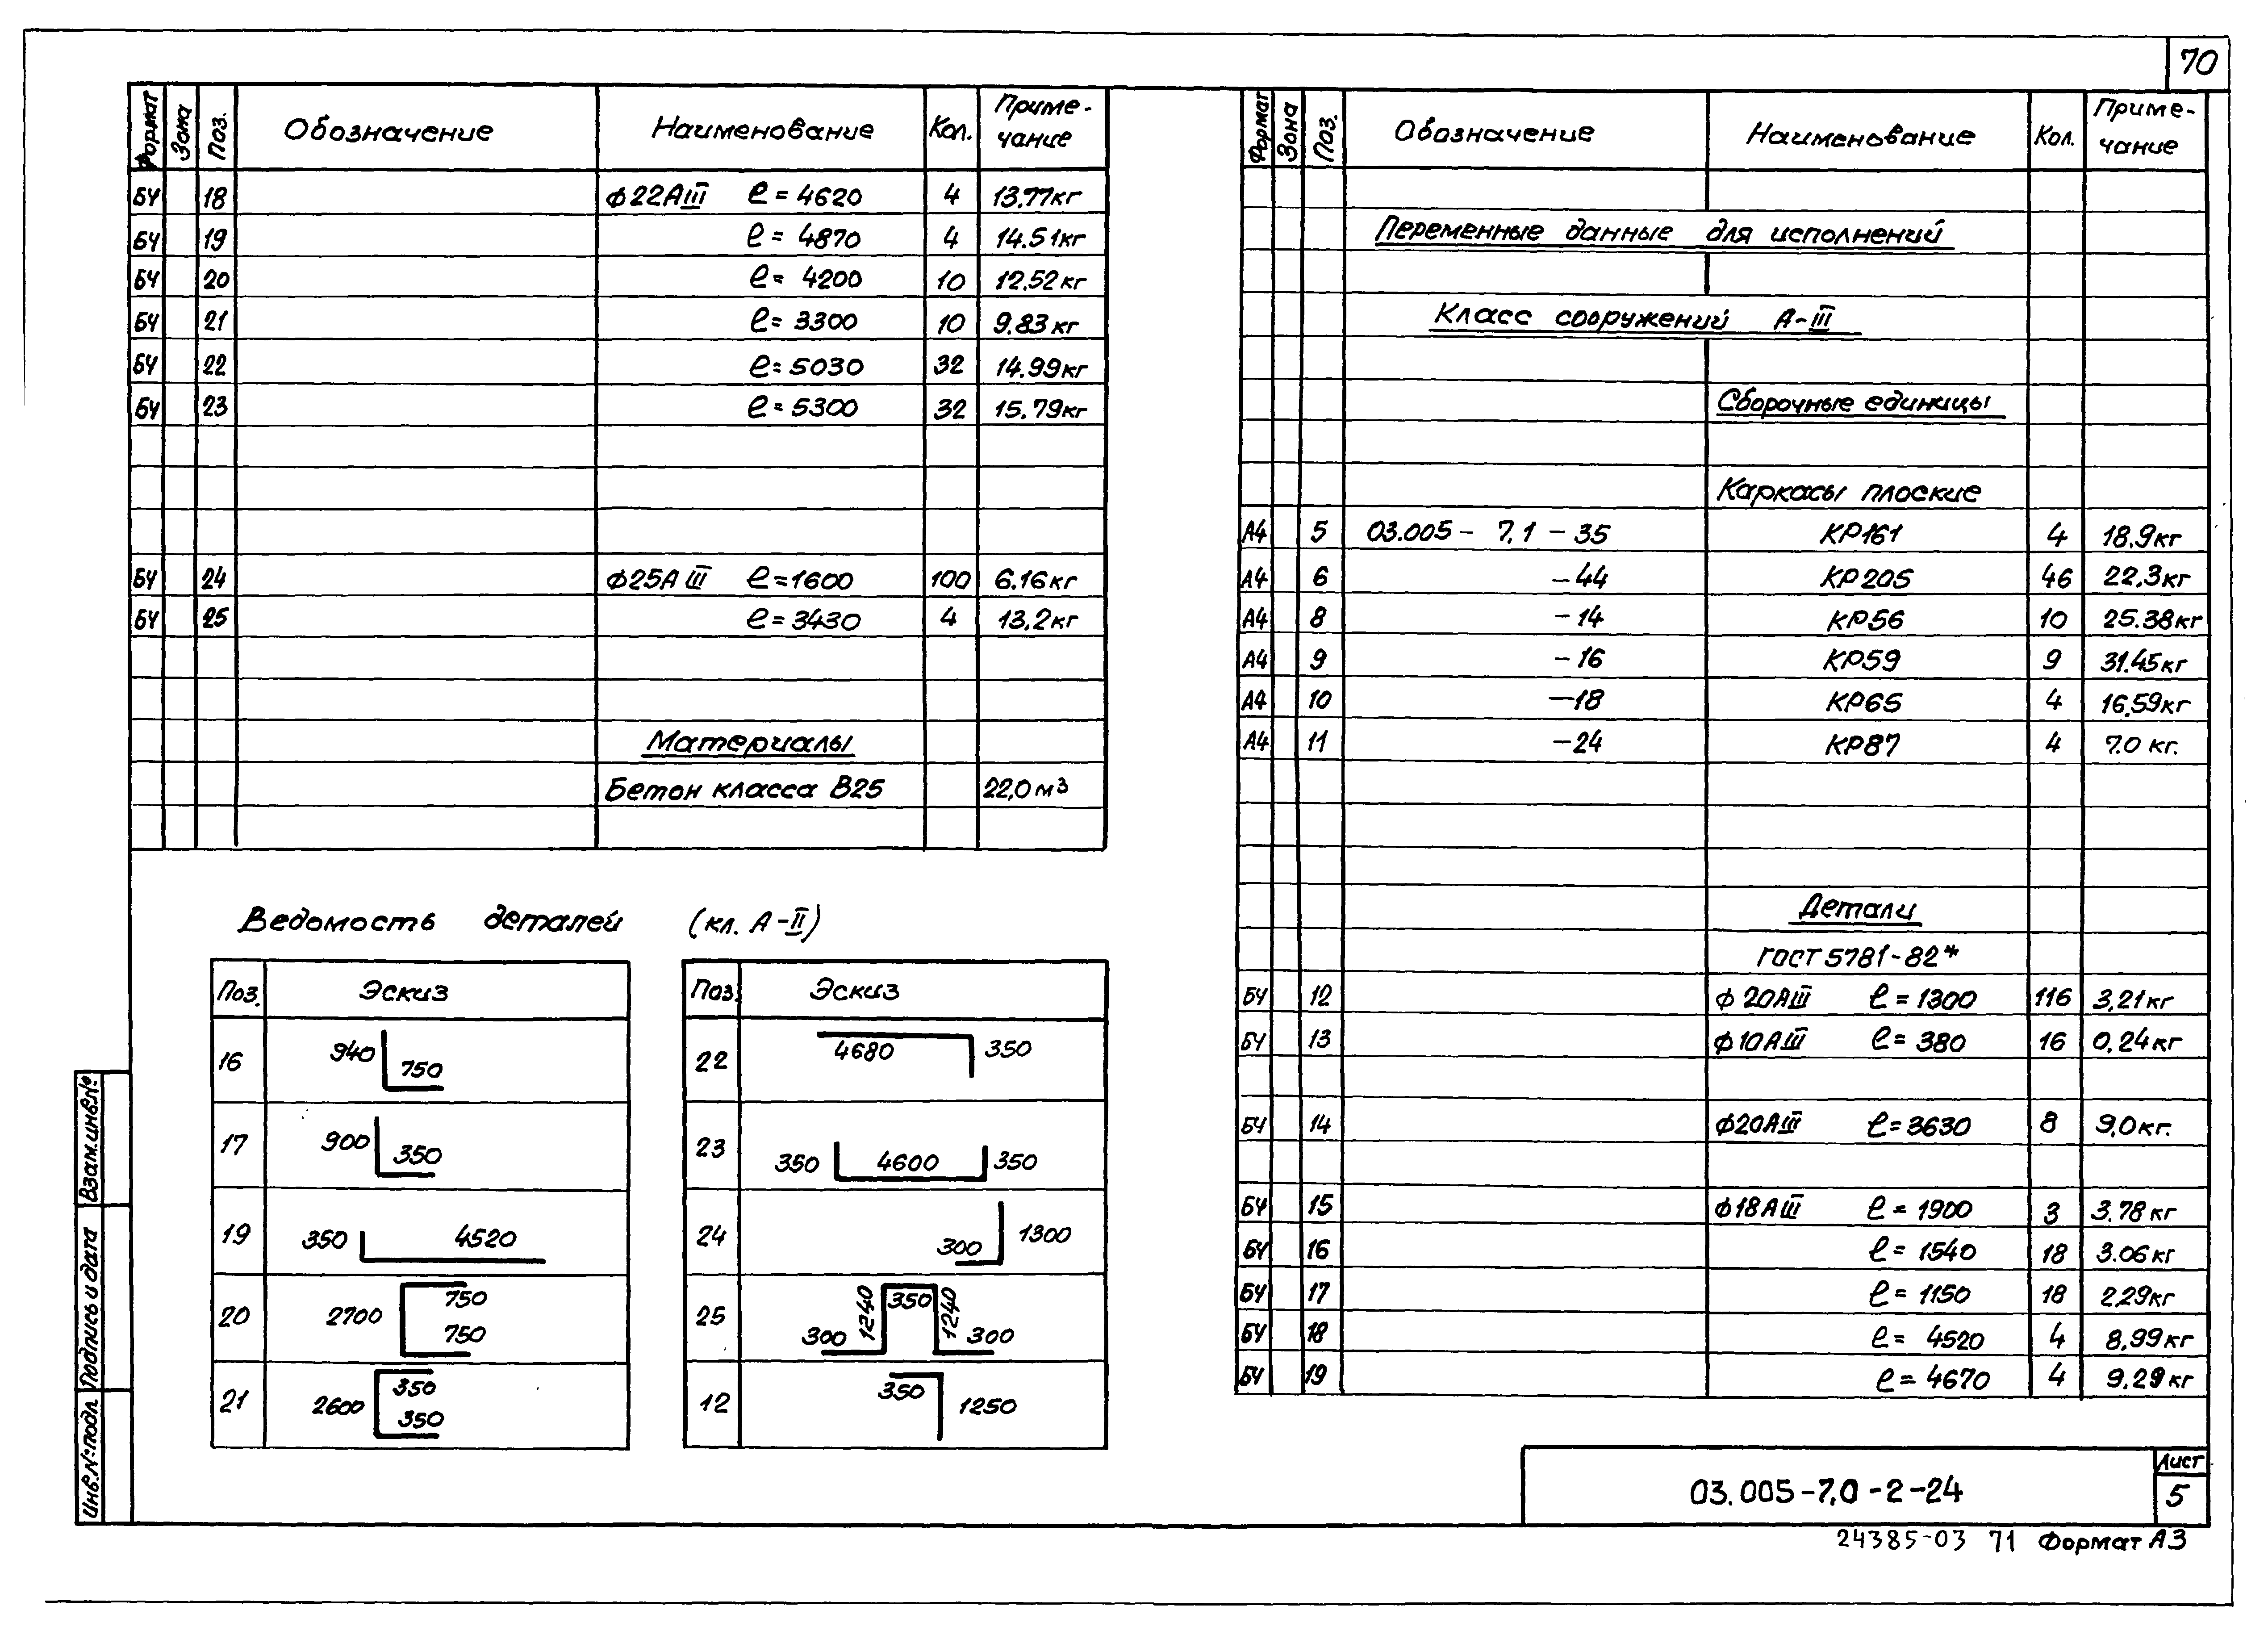 70
Формат Зона Поз. Обозначение Наименование Кол. Приме-чание
БЧ 18 ϕ22АIII ℓ=4620 4 13,77кг
БЧ 19 ℓ= 4870 4 14.51кг
БЧ 20 ℓ= 4200 10 12.52кг
БЧ 21 ℓ= 3300 10 9.83 кг
БЧ 22 ℓ=5030 32 14.99кг
БЧ 23 ℓ=5300 32 15.79кг
БЧ 24 ϕ25АIII ℓ=1600 100 6.16кг
БЧ 25 ℓ=3430 4 13,2кг
Материалы
Бетон класса В25 22,0м³
Ведомость деталей (кл. А-II)
Поз. Эскиз
16 940 750
17 900 350
19 350 4520
20 2700 750 750
21 2600 350 350
Поз. Эскиз
22 4680 350
23 350 4600 350
24 300 1300
25 300 1240 350 1240 300
12 350 1250
Формат Зона Поз. Обозначение Наименование Кол. Приме-чание
Переменные данные для исполнений
Класс сооружений А-III
Сборочные единицы
Каркасы плоские
А4 5 03.005- 7.1 -35 КР161 4 18,9кг
А4 6 -44 КР205 46 22,3кг
А4 8 -14 КР56 10 25.38кг
А4 9 -16 КР59 9 31.45кг
А4 10 -18 КР65 4 16,59кг
А4 11 -24 КР87 4 7.0 кг.
Детали
ГОСТ 5781-82*
БЧ 12 ϕ 20АIII ℓ=1300 116 3,21кг
БЧ 13 ϕ10АIII ℓ= 380 16 0,24кг
БЧ 14 ϕ20АIII ℓ=3630 8 9,0кг.
БЧ 15 ϕ18АIII ℓ= 1900 3 3.78кг
БЧ 16 ℓ= 1540 18 3.06кг
БЧ 17 ℓ= 1150 18 2,29кг
БЧ 18 ℓ= 4520 4 8,99кг
БЧ 19 ℓ=4670 4 9.29 кг
Взам.инв.№
Подпись и дата
Инв.№подл.
03.005-7.0-2-24
Лист
5
24385-03 71 Формат А3